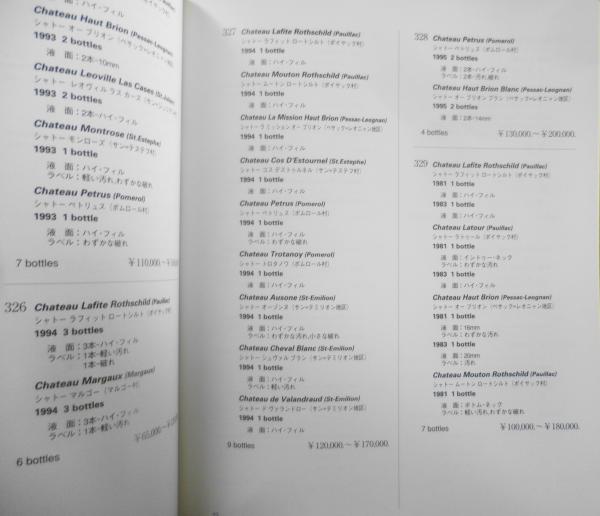 液　面：ハイ・フィル
Chateau Haut Brion (Pessac-Leognan)
シャトー オー ブリオン（ペサック=レオニャン地区）
1993 2 bottles
液　面：2本-10mm
Chateau Leoville Las Cases (St.Julien)
シャトー レオヴィル ラス カーズ（サン=ジュリアン村）
1993 2 bottles
液　面：2本-ハイ・フィル
Chateau Montrose (St.Estephe)
シャトー モンローズ（サン=テステフ村）
1993 1 bottle
液　面：ハイ・フィル
ラベル：軽い汚れ,わずかな破れ
Chateau Petrus (Pomerol)
シャトー ペトリュス（ポムロール村）
1993 1 bottle
液　面：ハイ・フィル
ラベル：わずかな破れ
7 bottles
￥110,000.～
326
Chateau Lafite Rothschild (Pauillac)
シャトー ラフィット ロートシルト（ポイヤック村）
1994 3 bottles
液　面：3本-ハイ・フィル
ラベル：1本-軽い汚れ
1本-破れ
Chateau Margaux (Margaux)
シャトー マルゴー（マルゴー村）
1994 3 bottles
液　面：3本-ハイ・フィル
ラベル：1本-軽い汚れ
￥65,000.～
6 bottles
327
Chateau Lafite Rothschild (Pauillac)
シャトー ラフィット ロートシルト（ポイヤック村）
1994 1 bottle
液　面：ハイ・フィル
Chateau Mouton Rothschild (Pauillac)
シャトー ムートン ロートシルト（ポイヤック村）
1994 1 bottle
液　面：ハイ・フィル
Chateau La Mission Haut Brion (Pessac-Leognan)
シャトー ラ ミッション オー ブリオン（ペサック=レオニャン地区）
1994 1 bottle
液　面：ハイ・フィル
Chateau Cos D'Estournel (St.Estephe)
シャトー コス デストゥルネル（サン=テステフ村）
1994 1 bottle
液　面：ハイ・フィル
Chateau Petrus (Pomerol)
シャトー ペトリュス（ポムロール村）
1994 1 bottle
液　面：ハイ・フィル
ラベル：わずかな汚れ
Chateau Trotanoy (Pomerol)
シャトー トロタノワ（ポムロール村）
1994 1 bottle
液　面：ハイ・フィル
Chateau Ausone (St-Emilion)
シャトー オーゾンヌ（サン=テミリオン地区）
1994 1 bottle
液　面：ハイ・フィル
ラベル：わずかな汚れ,小さな破れ
Chateau Cheval Blanc (St-Emilion)
シャトー シュヴァル ブラン（サン=テミリオン地区）
1994 1 bottle
液　面：ハイ・フィル
Chateau de Valandraud (St-Emilion)
シャトー ド ヴァランドロー（サン=テミリオン地区）
1994 1 bottle
液　面：ハイ・フィル
9 bottles
￥120,000.～￥170,000.
328
Chateau Petrus (Pomerol)
シャトー ペトリュス（ポムロール村）
1995 2 bottles
液　面：2本-ハイ・フィル
ラベル：2本-汚れ,破れ
Chateau Haut Brion Blanc (Pessac-Leognan)
シャトー オー ブリオン ブラン（ペサック=レオニャン地区）
1995 2 bottles
液　面：2本-14mm
4 bottles
￥130,000.～￥200,000.
329
Chateau Lafite Rothschild (Pauillac)
シャトー ラフィット ロートシルト（ポイヤック村）
1981 1 bottle
液　面：ハイ・フィル
1983 1 bottle
液　面：ハイ・フィル
Chateau Latour (Pauillac)
シャトー ラトゥール（ポイヤック村）
1981 1 bottle
液　面：イントゥー・ネック
ラベル：わずかな汚れ
1983 1 bottle
液　面：ハイ・フィル
Chateau Haut Brion (Pessac-Leognan)
シャトー オー ブリオン（ペサック=レオニャン地区）
1981 1 bottle
液　面：16mm
ラベル：わずかな汚れ
1983 1 bottle
液　面：20mm
ラベル：汚れ
Chateau Mouton Rothschild (Pauillac)
シャトー ムートン ロートシルト（ポイヤック村）
1981 1 bottle
液　面：ボトム・ネック
ラベル：軽い汚れ,わずかな破れ
7 bottles
￥100,000.～￥180,000.